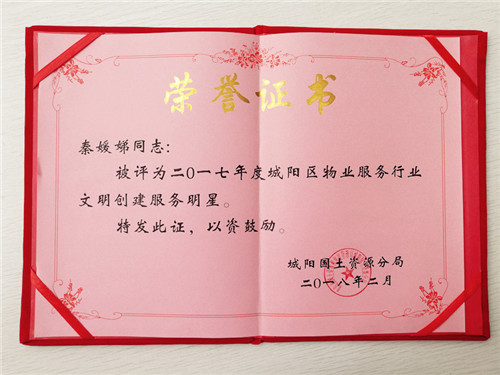 荣誉证书
秦媛娣同志：
被评为二〇一七年度城阳区物业服务行业
文明创建服务明星。
特发此证，以资鼓励。
城阳国土资源分局
二〇一八年二月